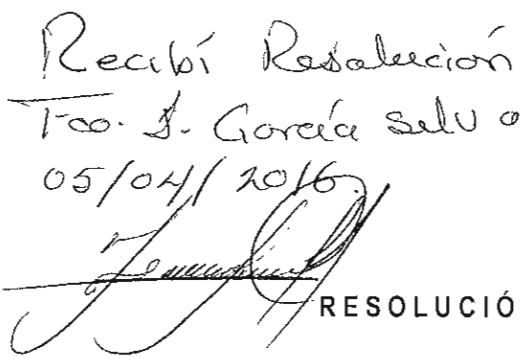 Recibí Resolución
Fco. J. García Selva
05/04/2016.
RESOLUCIÓ